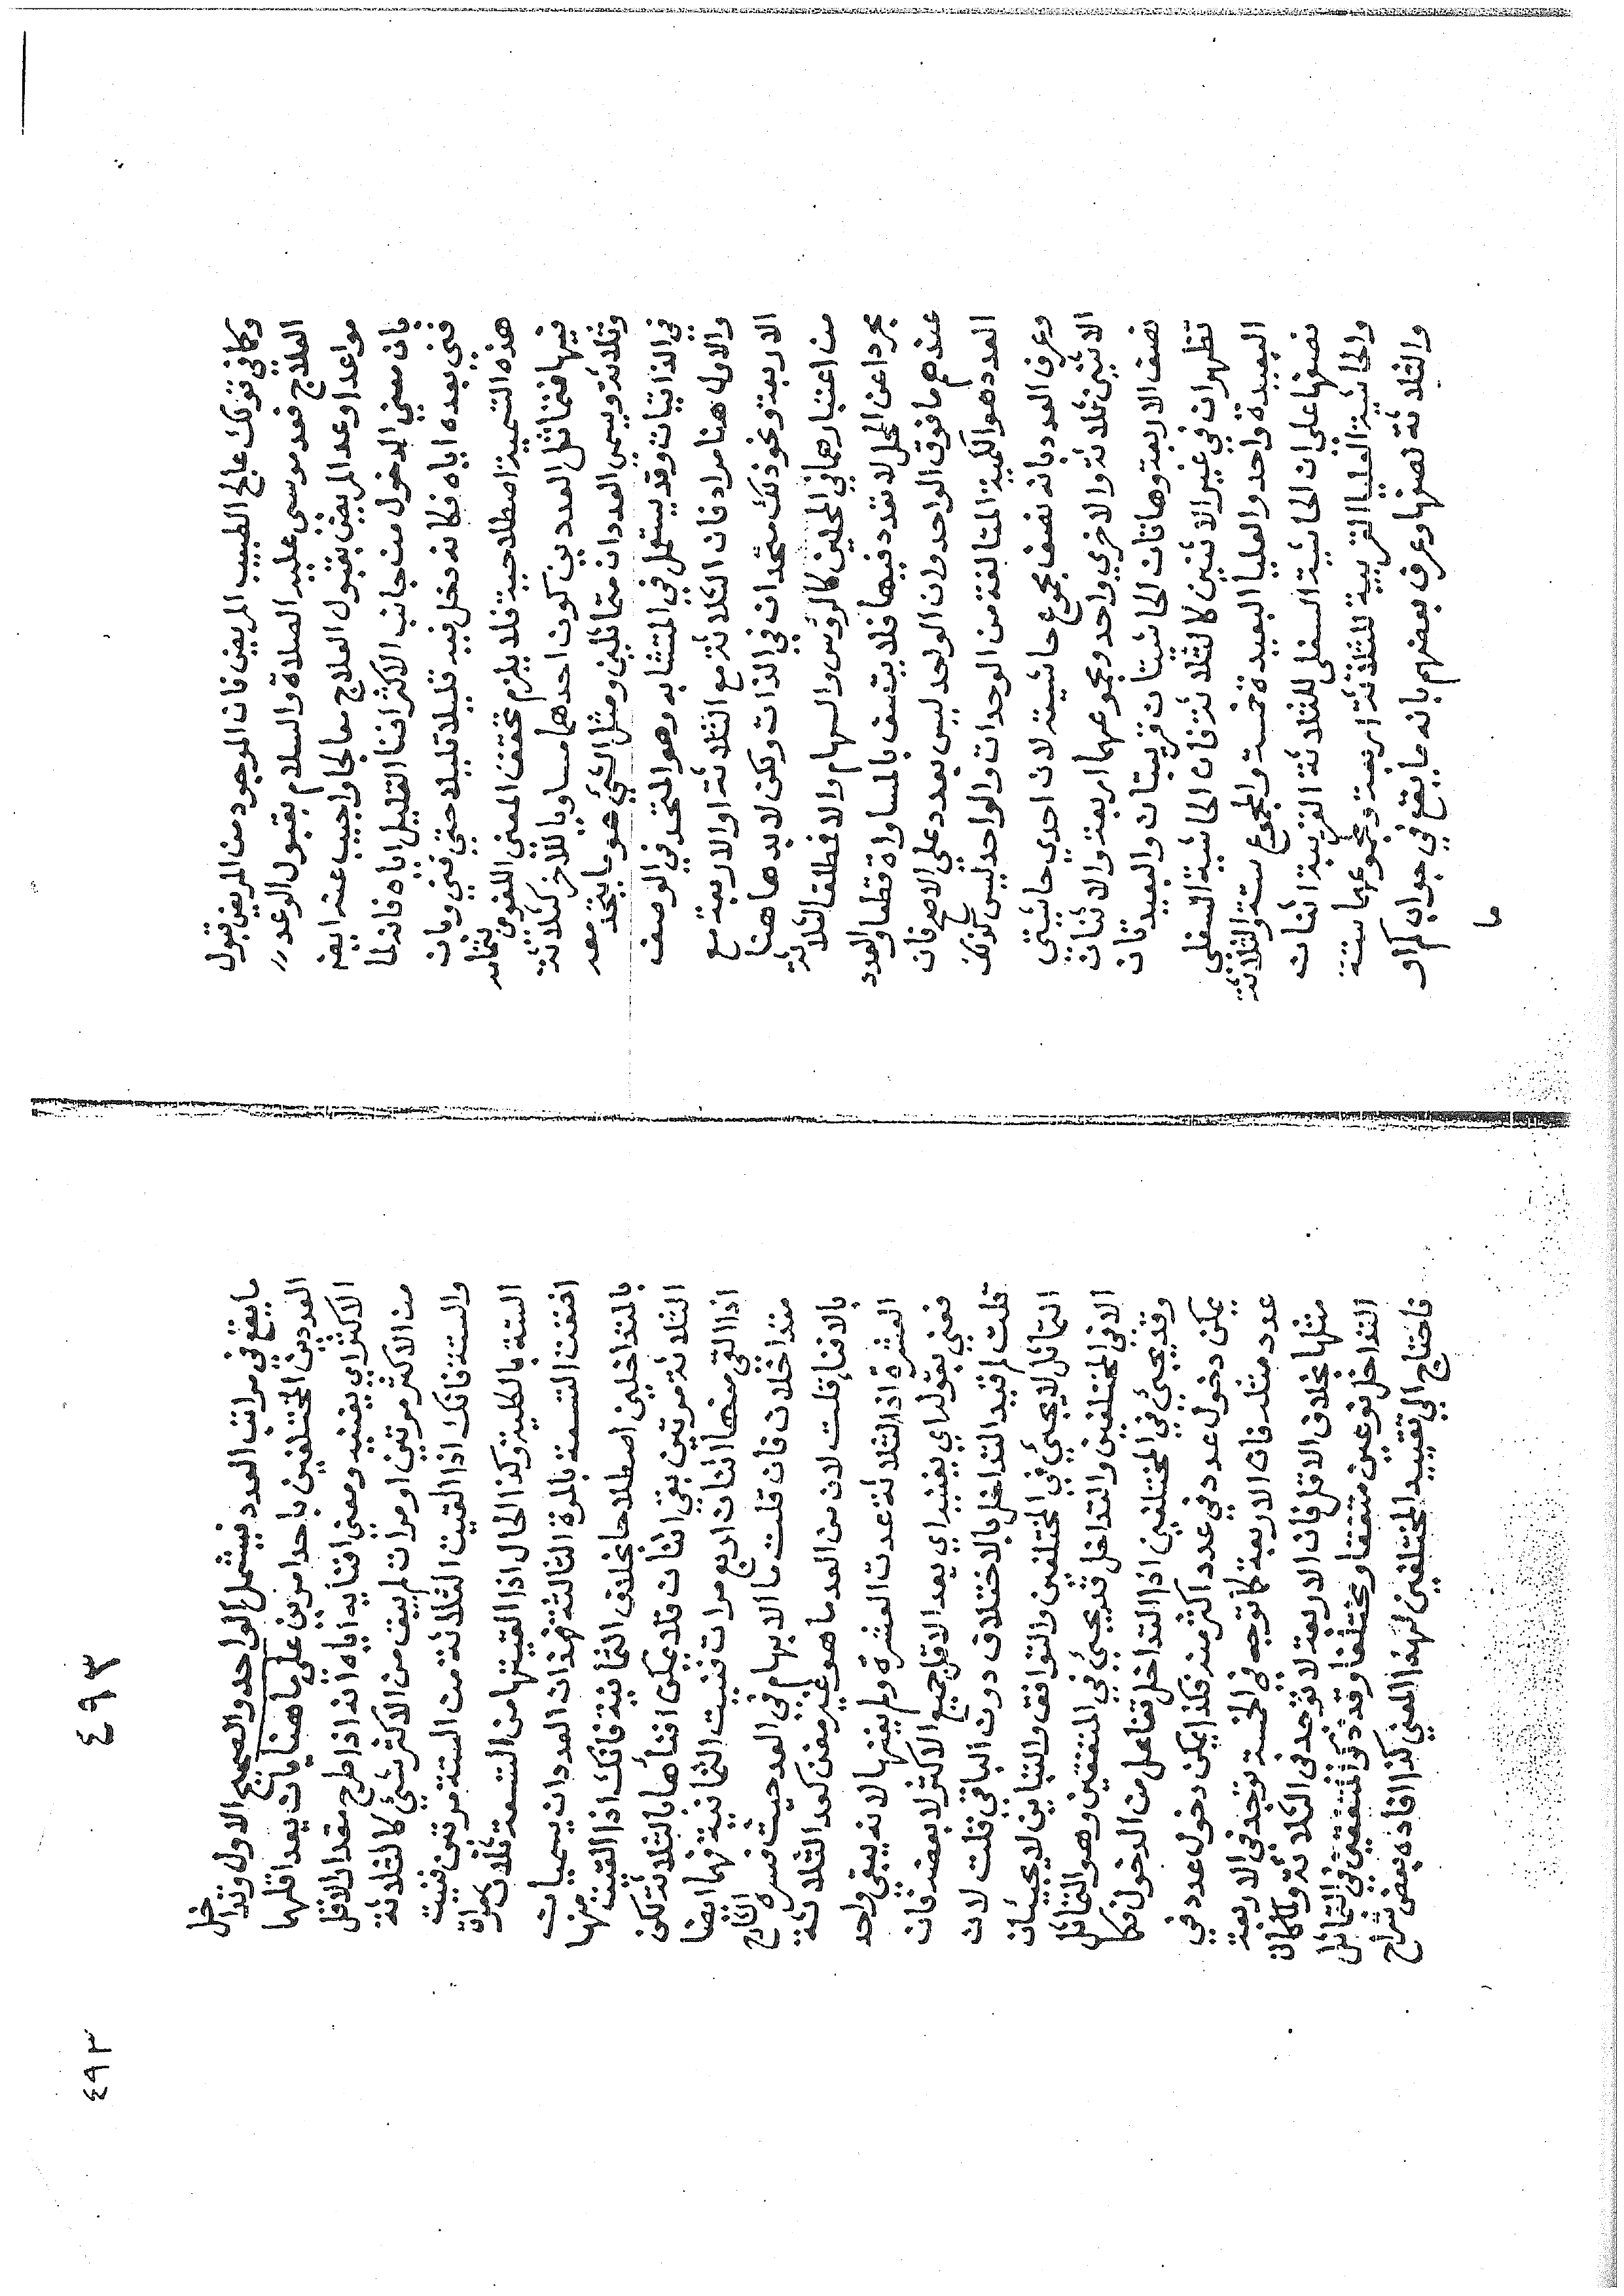 وكما في قولك عالج الطبيب المريض فان الموجود من المريض قبول
العلاج فعد موسى عليه الصلاة والسلام بقبول الوعد
مواعدا وعد المريض بقبول العلاج معالجا واجيب عنه ايضا
بان معني الدخول من جانب الاكثر افنا القليل اياه فانه لما
فني بعده اياه فكانه دخل فيه قليلا قليلا حتي فني وبان
هذه التسمية اصطلاحية فلا يلزم تحقق المعني اللغوي
فيها فتماثل العددين كون احدهما مساويا للاخر كثلاثة
وثلاثة ويسمي العددان متماثلين ومثل الشئ هو ما يتحد معه
في الذاتيات وقد يستعمل في المتشابه وهو المتحد في الوصف
والاول هنا مراد فان الثلاثة مع الثلاثة او الاربعة مع
الاربعة ونحو ذلك متحدان في الذات ولكن لابد هاهنا
من اعتبارهما في المحلين كالرؤس والسهام والا فمطلق الثلاثة
مجردا عن المحل لا تعدد فيها فلا يتصف بالمساواة قطعا والعدد
عندهم ما فوق الواحد وان الواحد ليس بعدد علي الاصح فان
العدد هو الكمية المتالفة من الوحدات والواحد ليس كذلك
وعرف العدد بانه نصف مجموع حاشيته لان احدي حاشيتي
الاثنين ثلاثة والاخري واحد ومجموعهما اربعة والاثنان
نصف الاربعة وهاتان الحاشيتان قريبتان والبعيدتان
تظهران في غير الاثنين كالثلاثة فان الحاشية السفلي
البعيدة واحد والعليا البعيدة خمسة والمجموع ستة والثلاثة
نصفها علي ان الحاشية السفلي للثلاثة القريبة اثنان
والحاشية العليا القريبة للثلاثة اربعة ومجموعهما ستة
والثلاثة نصفها وعرف بعضهم بانه ما يقع في جواب كم او
ما
٤٩٣
ما يقع في مراتب العدد فيشمل الواحد والصحيح الاول وتداخل
العددين المختلفين باحد امرين علي ما هنا بان يعد اقلهما
الاكثر اي يفنيه ومعني افنايه اياه انه اذا طرح مقدار الاقل
من الاكثر مرتين او مرات لم يبق من الاكثر شئ كالثلاثة
والستة فانك اذا القيت الثلاثة من الستة مرتين فنيت
الستة بالكلية وكذا الحال اذا القيتها من التسعة ثلاث مرات
افنيت التسعة بالمرة الثالثة فهذان العددان يسميان
بالمتداخلين اصطلاحا بخلاف الثمانية فانك اذا القيت منها
الثلاثة مرتين بقي اثنان فلا يمكن افناؤها بالثلاثة لكن
اذا القي منها اثنان اربع مرات فنيت الثمانية فهما ايضا
متداخلان فان قلت ما الابهام في العد حيث فسره الشارح
بالافناء قلت لان من العد ما هو غير مفن كعد الثلاثة
العشرة اذ الثلاثة عدت العشرة ولم يفنها لانه يبقي واحد
فعني بقوله اي يفنيه اي يعد الاقل جميع الاكثر لا بعضه فان
قلت لم قيد التداخل بالاختلاف دون الباقي قلت لان
التماثل لا يجئ في المختلفين والتوافق والتباين لا يجيئان
الا في المختلفين والتداخل قد يجئ في المتفقين وهو التماثل
وقد يجئ في المختلفين اذ التداخل تفاعل من الدخول فكما
يمكن دخول عدد في عدد اكثر منه فكذا يمكن دخول عدد في
عدد مثله فان الاربعة كما توجد في الخمسة توجد في الاربعة
مثلها بخلاف الاقل فان الاربعة لا توجد في الثلاثة ولما كان
التداخل نوعين متفقا ومختلفا وقد ذكر المتفقين في التماثل
فاحتاج الي تقييد المختلفين لهذا المعني كذا افاده بعض شراح
٤٩٣